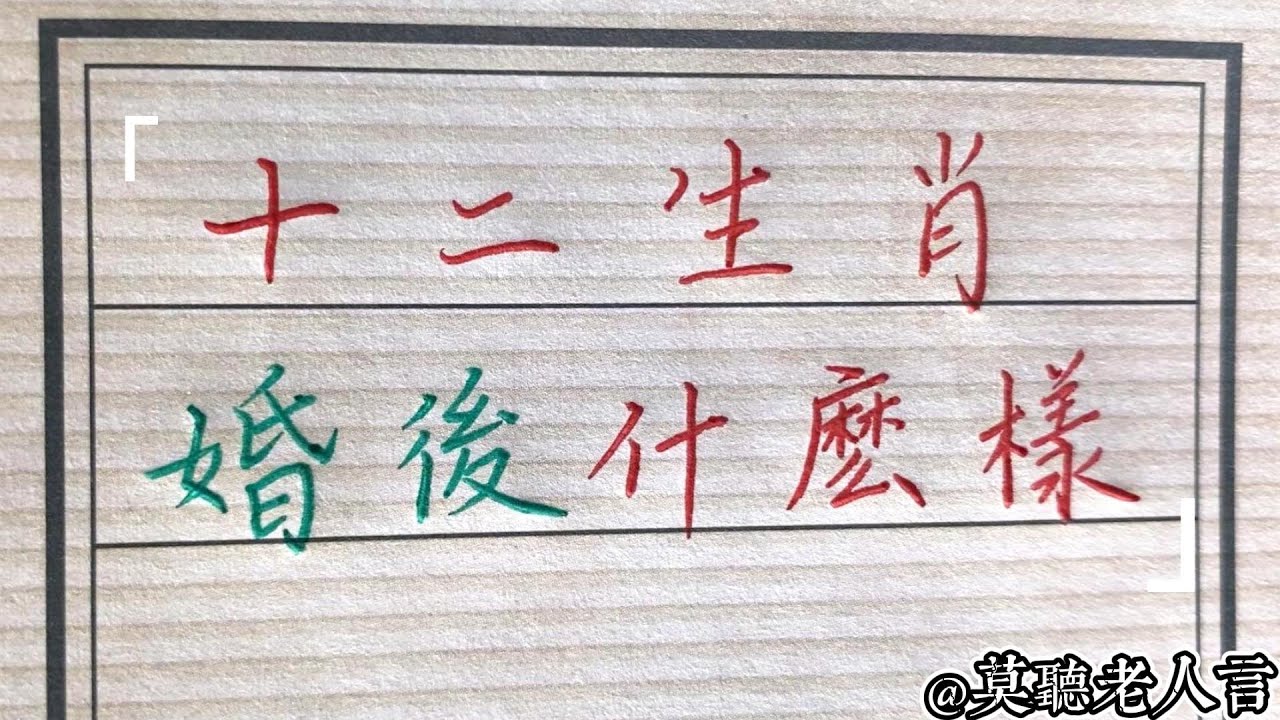 十二生肖
婚後什麼樣
@莫聽老人言